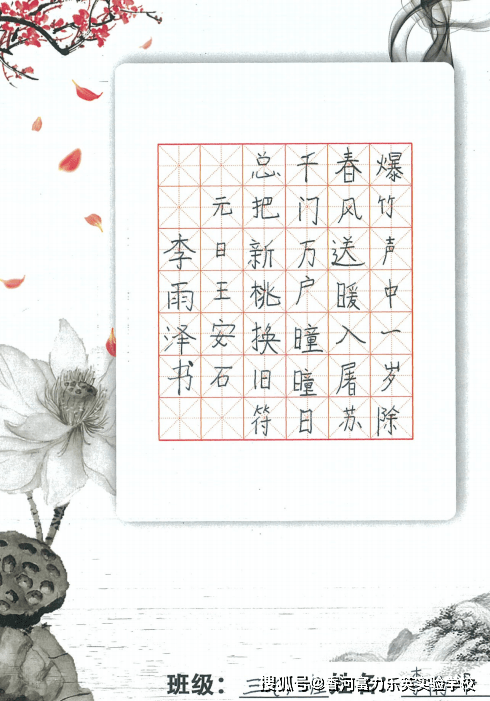 爆竹声中一岁除
春风送暖入屠苏
千门万户曈曈日
总把新桃换旧符
元日王安石
李雨泽书
班级：
搜狐号@春河富力乐英实验学校